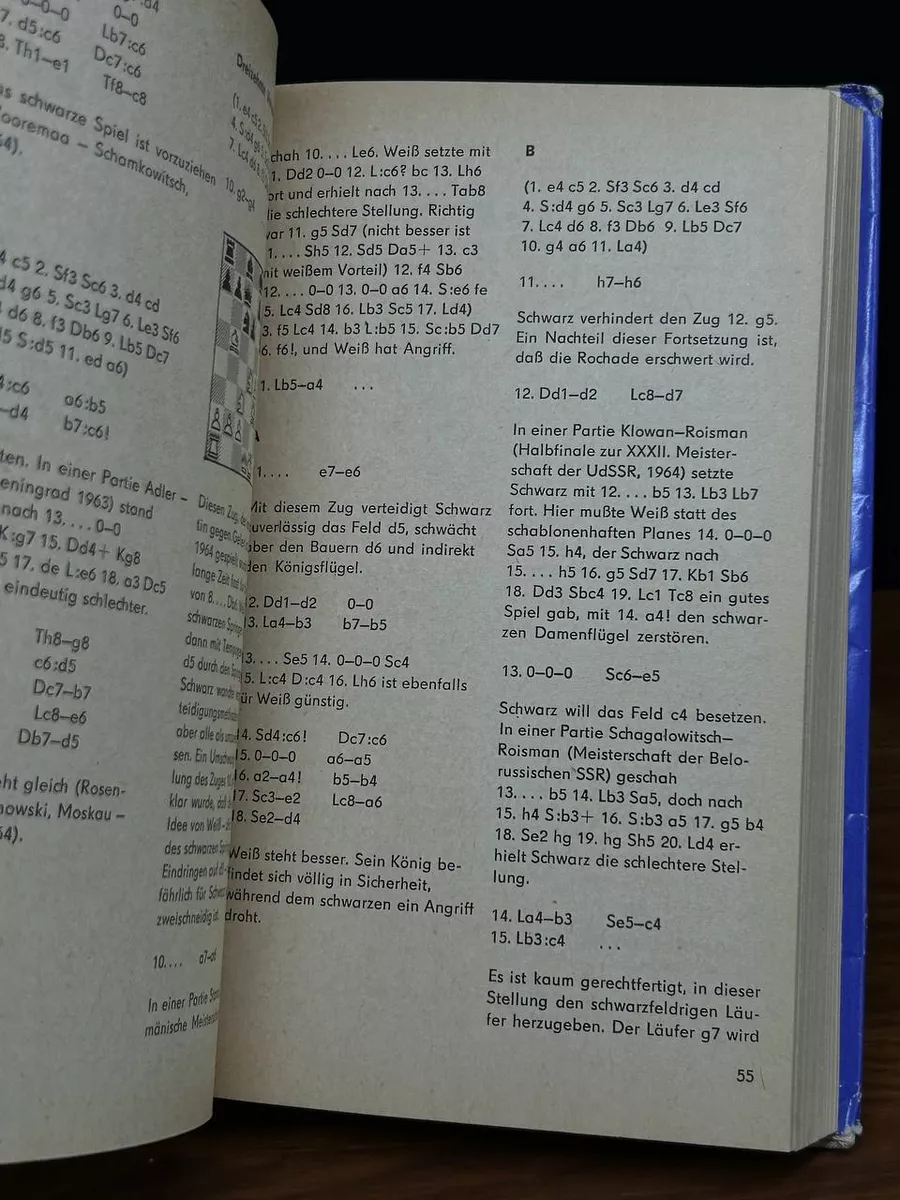 0–0–0 0–0
7. d5:c6 Lb7:c6
8. Th1–e1 Dc7:c6
Tf8–c8
schwarze Spiel ist vorzuziehen
– Schamkowitsch,
c5 2. Sf3 Sc6 3. d4 cd
g6 5. Sc3 Lg7 6. Le3 Sf6
d6 8. f3 Db6 9. Lb5 Dc7
S:d5 11. ed a6)
a6:b5
b7:c6!
In einer Partie Adler –
1963) stand
nach 13. . . . 0–0
K:g7 15. Dd4+ Kg8
17. de L:e6 18. a3 Dc5
eindeutig schlechter.
Th8–g8
c6:d5
Dc7–b7
Lc8–e6
Db7–d5
gleich (Rosen-
Moskau –
(1. e4 c5 2.
4. S:d4 g6
7. Lc4 d6
10. g2–g4
Diesen Zug,
1964
lange Zeit
von 8. . . .
schwarzen
dann mit
d5 durch den
Schwarz
aber alle als
sen. Ein
lung des Zuges
klar wurde,
Idee von Weiß
des schwarzen
Eindringen auf
fährlich für
zweischneidig
10. . . . a7–a6
In einer Partie
mänische
10. . . . Le6. Weiß setzte mit
1. Dd2 0–0 12. L:c6? bc 13. Lh6
und erhielt nach 13. . . . Tab8
schlechtere Stellung. Richtig
11. g5 Sd7 (nicht besser ist
1. . . . Sh5 12. Sd5 Da5+ 13. c3
mit weißem Vorteil) 12. f4 Sb6
12. . . . 0–0 13. 0–0 a6 14. S:e6 fe
5. Lc4 Sd8 16. Lb3 Sc5 17. Ld4)
3. f5 Lc4 14. b3 L:b5 15. Sc:b5 Dd7
6. f6!, und Weiß hat Angriff.
1. Lb5–a4 . . .
1. . . . e7–e6
Mit diesem Zug verteidigt Schwarz
zuverlässig das Feld d5, schwächt
aber den Bauern d6 und indirekt
den Königsflügel.
2. Dd1–d2 0–0
3. La4–b3 b7–b5
3. . . . Se5 14. 0–0–0 Sc4
5. L:c4 D:c4 16. Lh6 ist ebenfalls
für Weiß günstig.
4. Sd4:c6! Dc7:c6
5. 0–0–0 a6–a5
6. a2–a4! b5–b4
7. Sc3–e2 Lc8–a6
8. Se2–d4
Weiß steht besser. Sein König be-
findet sich völlig in Sicherheit,
während dem schwarzen ein Angriff
droht.
B
(1. e4 c5 2. Sf3 Sc6 3. d4 cd
4. S:d4 g6 5. Sc3 Lg7 6. Le3 Sf6
7. Lc4 d6 8. f3 Db6 9. Lb5 Dc7
10. g4 a6 11. La4)
11. . . . h7–h6
Schwarz verhindert den Zug 12. g5.
Ein Nachteil dieser Fortsetzung ist,
daß die Rochade erschwert wird.
12. Dd1–d2 Lc8–d7
In einer Partie Klowan–Roisman
(Halbfinale zur XXXII. Meister-
schaft der UdSSR, 1964) setzte
Schwarz mit 12. . . . b5 13. Lb3 Lb7
fort. Hier mußte Weiß statt des
schablonenhaften Planes 14. 0–0–0
Sa5 15. h4, der Schwarz nach
15. . . . h5 16. g5 Sd7 17. Kb1 Sb6
18. Dd3 Sbc4 19. Lc1 Tc8 ein gutes
Spiel gab, mit 14. a4! den schwar-
zen Damenflügel zerstören.
13. 0–0–0 Sc6–e5
Schwarz will das Feld c4 besetzen.
In einer Partie Schagalowitsch–
Roisman (Meisterschaft der Belo-
russischen SSR) geschah
13. . . . b5 14. Lb3 Sa5, doch nach
15. h4 S:b3+ 16. S:b3 a5 17. g5 b4
18. Se2 hg 19. hg Sh5 20. Ld4 er-
hielt Schwarz die schlechtere Stel-
lung.
14. La4–b3 Se5–c4
15. Lb3:c4 . . .
Es ist kaum gerechtfertigt, in dieser
Stellung den schwarzfeldrigen Läu-
fer herzugeben. Der Läufer g7 wird
55